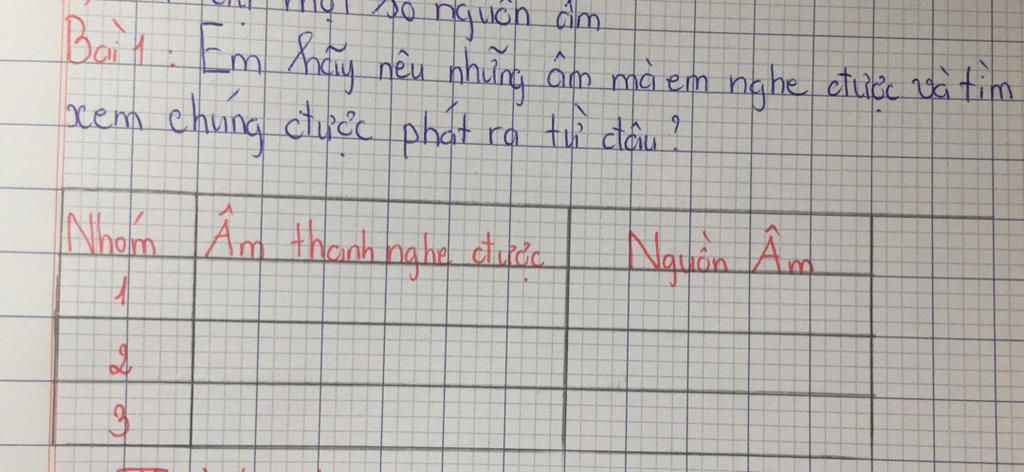 một số nguồn âm
Bài 1: Em hãy nêu những âm mà em nghe được và tìm
xem chúng được phát ra từ đâu?
Nhóm Âm thanh nghe được Nguồn Âm
1
2
3